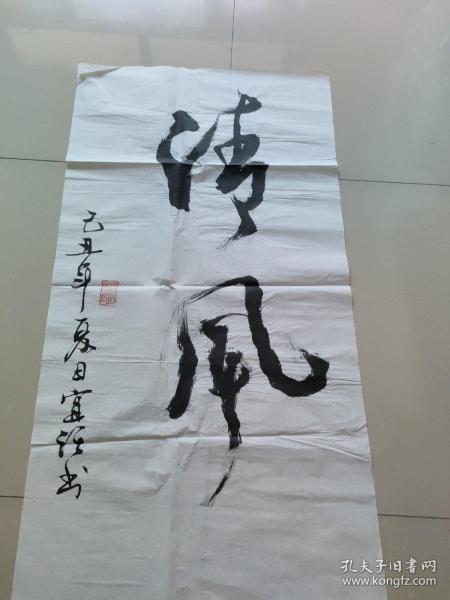 清风
己丑年夏田富江书
孔夫子旧书网
www.kongfz.com